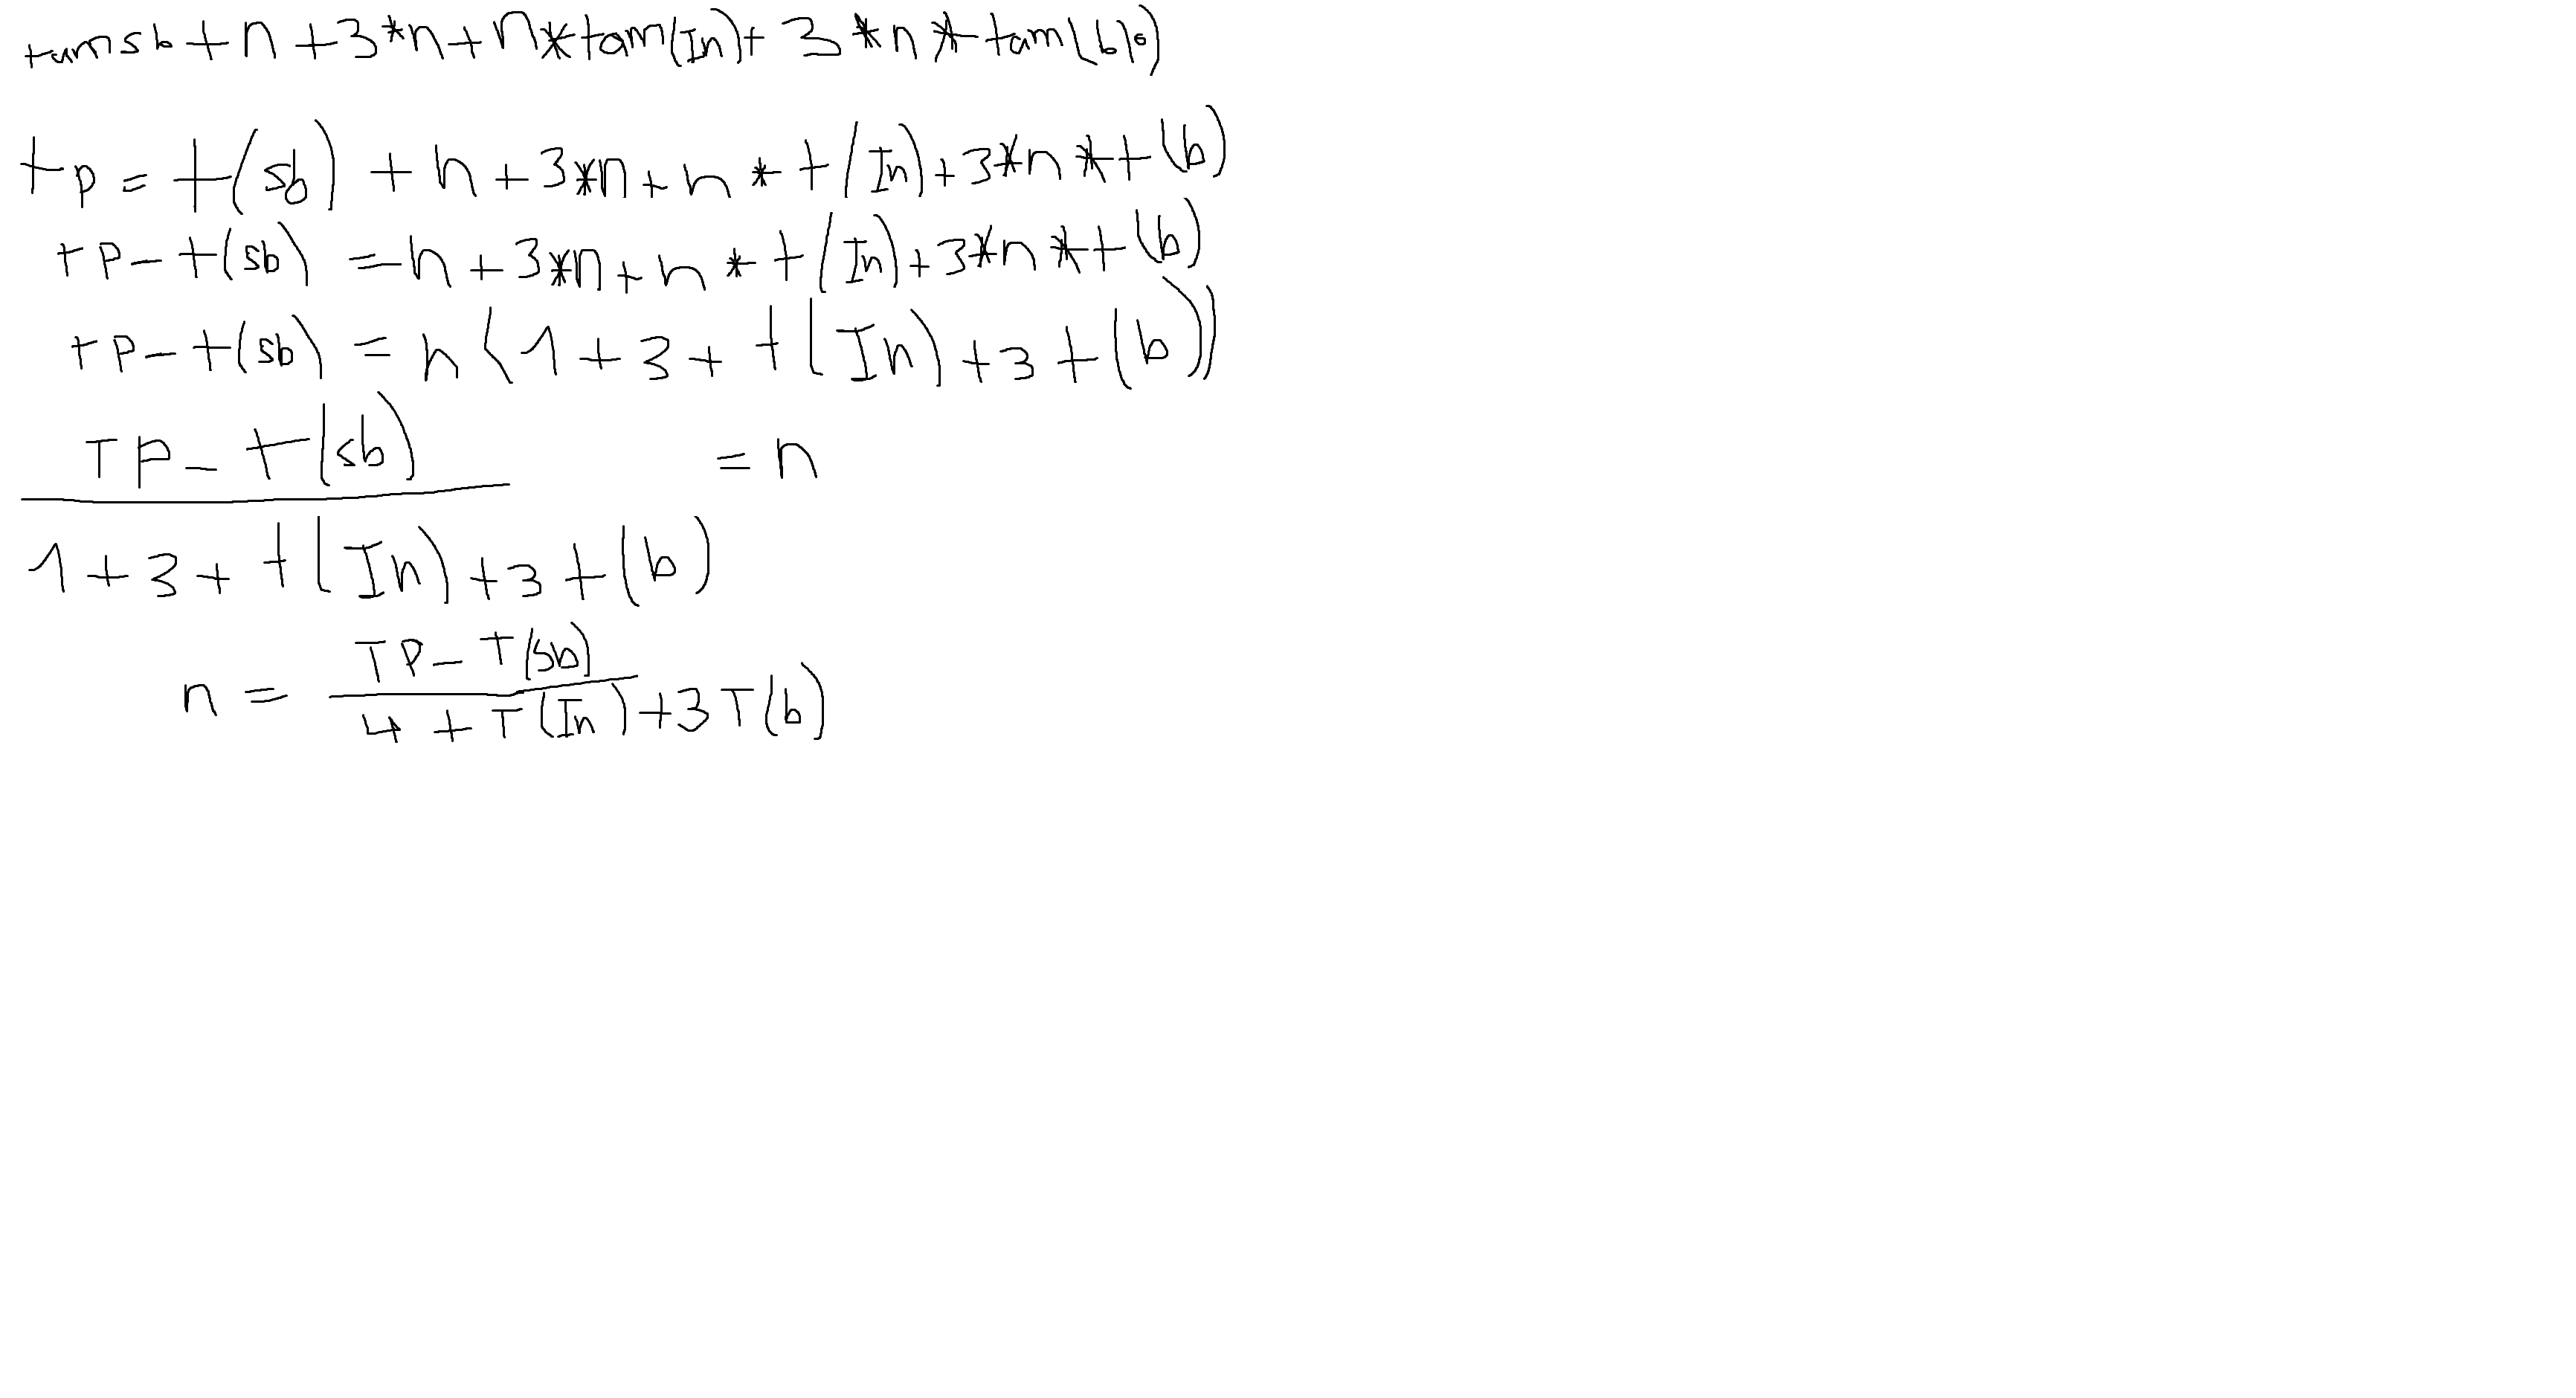 tamsb + n + 3*n + n*tam(In) + 3*n*tam(blo)
tp = t(sb) + n + 3*n + n * t(In) + 3*n*t(b)
tp - t(sb) = n + 3*n + n * t(In) + 3*n*t(b)
tp - t(sb) = n(1 + 3 + t(In) + 3t(b))
TP - t(sb) = n
1 + 3 + t(In) + 3t(b)
TP - T(sb)
n =
4 + T(In) + 3T(b)